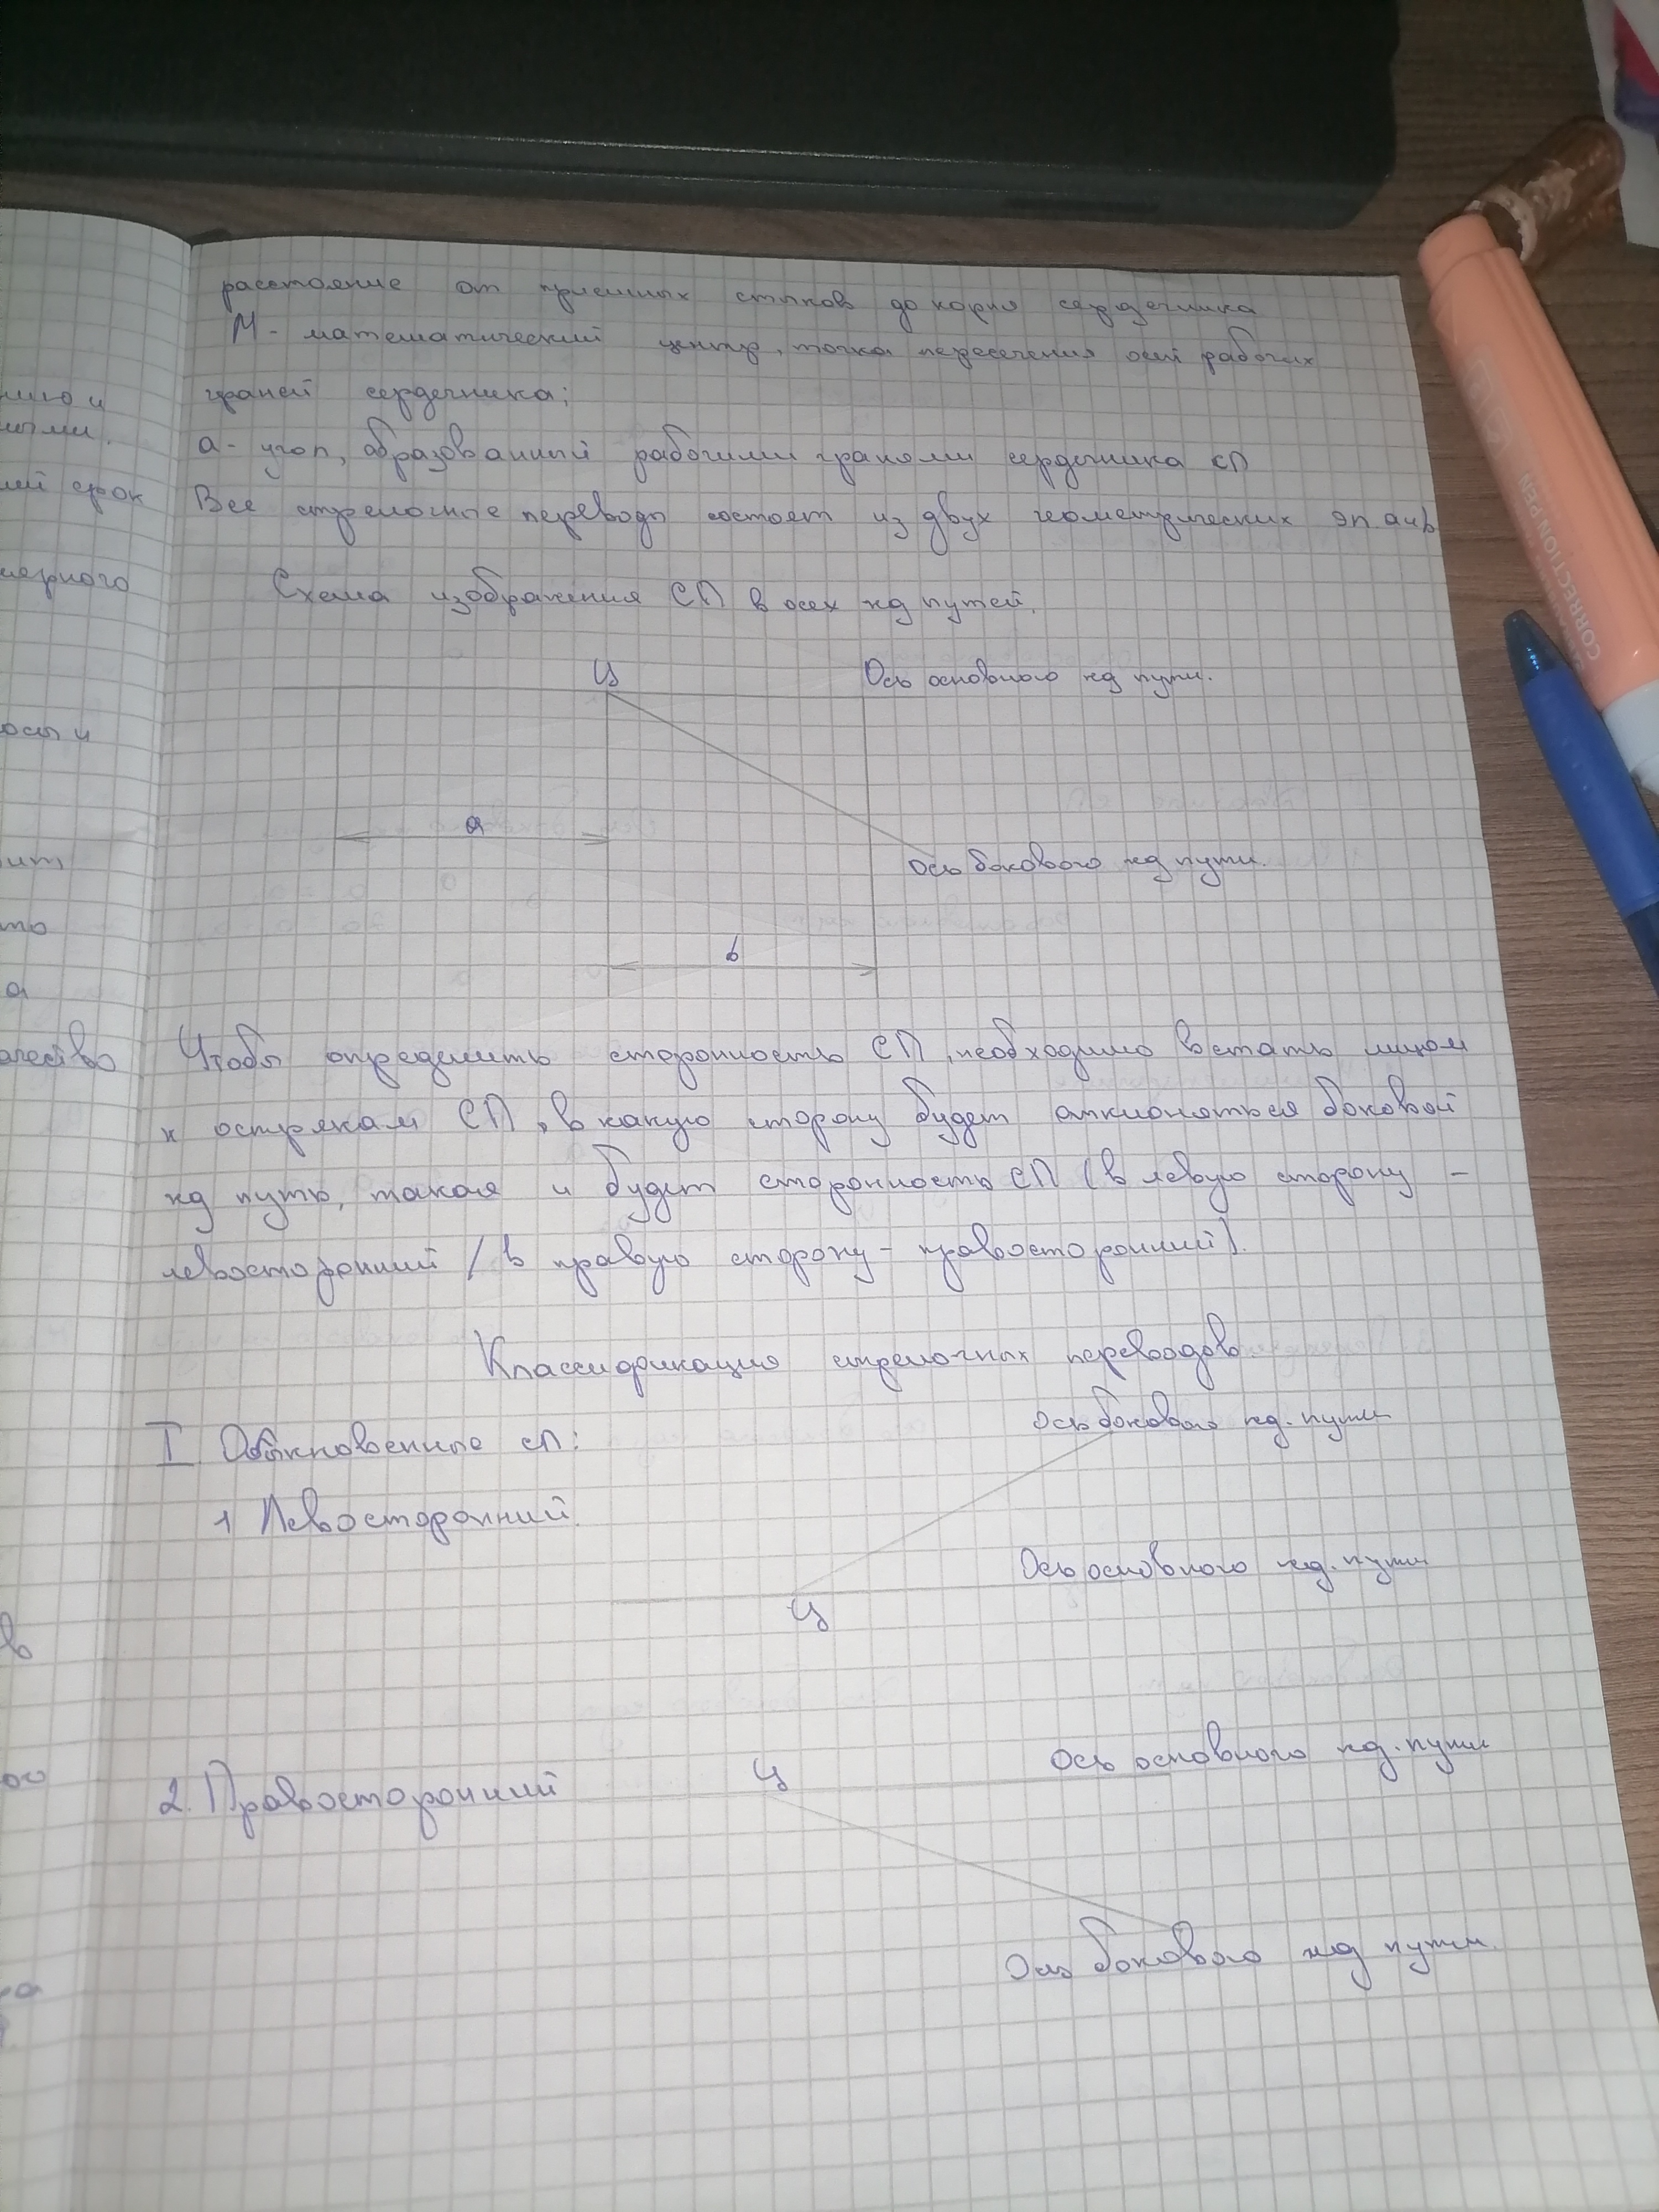 расстояние от приемных стыков до корня сердечника
М - математический центр, точка пересечения осей рабочих
граней сердечника;
а - угол, образованный рабочими гранями сердечника СП
Все стрелочные переводы состоят из двух геометрических эл. а и b
Схема изображения СП в осях жд путей.
Ц
Ось основного жд пути.
а
Ось бокового жд пути.
b
Чтобы определить сторонность СП, необходимо встать лицом
к острякам СП, в какую сторону будет отклоняться боковой
жд путь, такая и будет сторонность СП (в левую сторону -
левосторонний / в правую сторону - правосторонний).
Классификация стрелочных переводов.
Ось бокового жд. пути
I Обыкновенные СП:
1 Левосторонний.
Ось основного жд. пути
Ц
Ось основного жд. пути
Ц
2. Правосторонний
Ось бокового жд пути.
ний срок
мерного
осы и
то
а
ачество
в
CORRECTION PEN